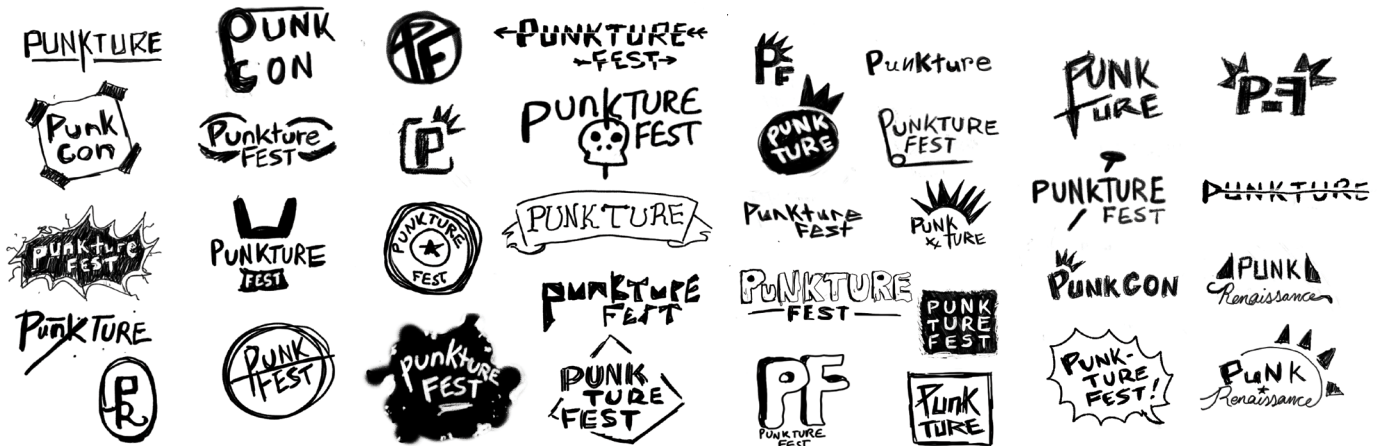 PUNKTURE
Punk
Con
Punkture
FEST
PUNKTURE
PR
PUNK
CON
Punkture
FEST
PUNKTURE
FEST
PUNK
FEST
PF
P
PUNKTURE
FEST
Punkture
FEST
PUNKTURE
FEST
PunkTURE
FEST
PUNKTURE
PunkTuRE
FEST
PUNK
TURE
FEST
PF
PUNK
TURE
Punkture
Fest
PuNKTURE
FEST
PF
PUNKTURE
FEST
Punkture
PUNKTURE
FEST
PUNK
TURE
PUNK
TURE
FEST
PunK
TURE
PUNK
TURE
PUNKTURE
FEST
PUNKCON
PUNK-
TURE
FEST!
P=F
PUNKTURE
PUNK
Renaissance
PuNK
Renaissance